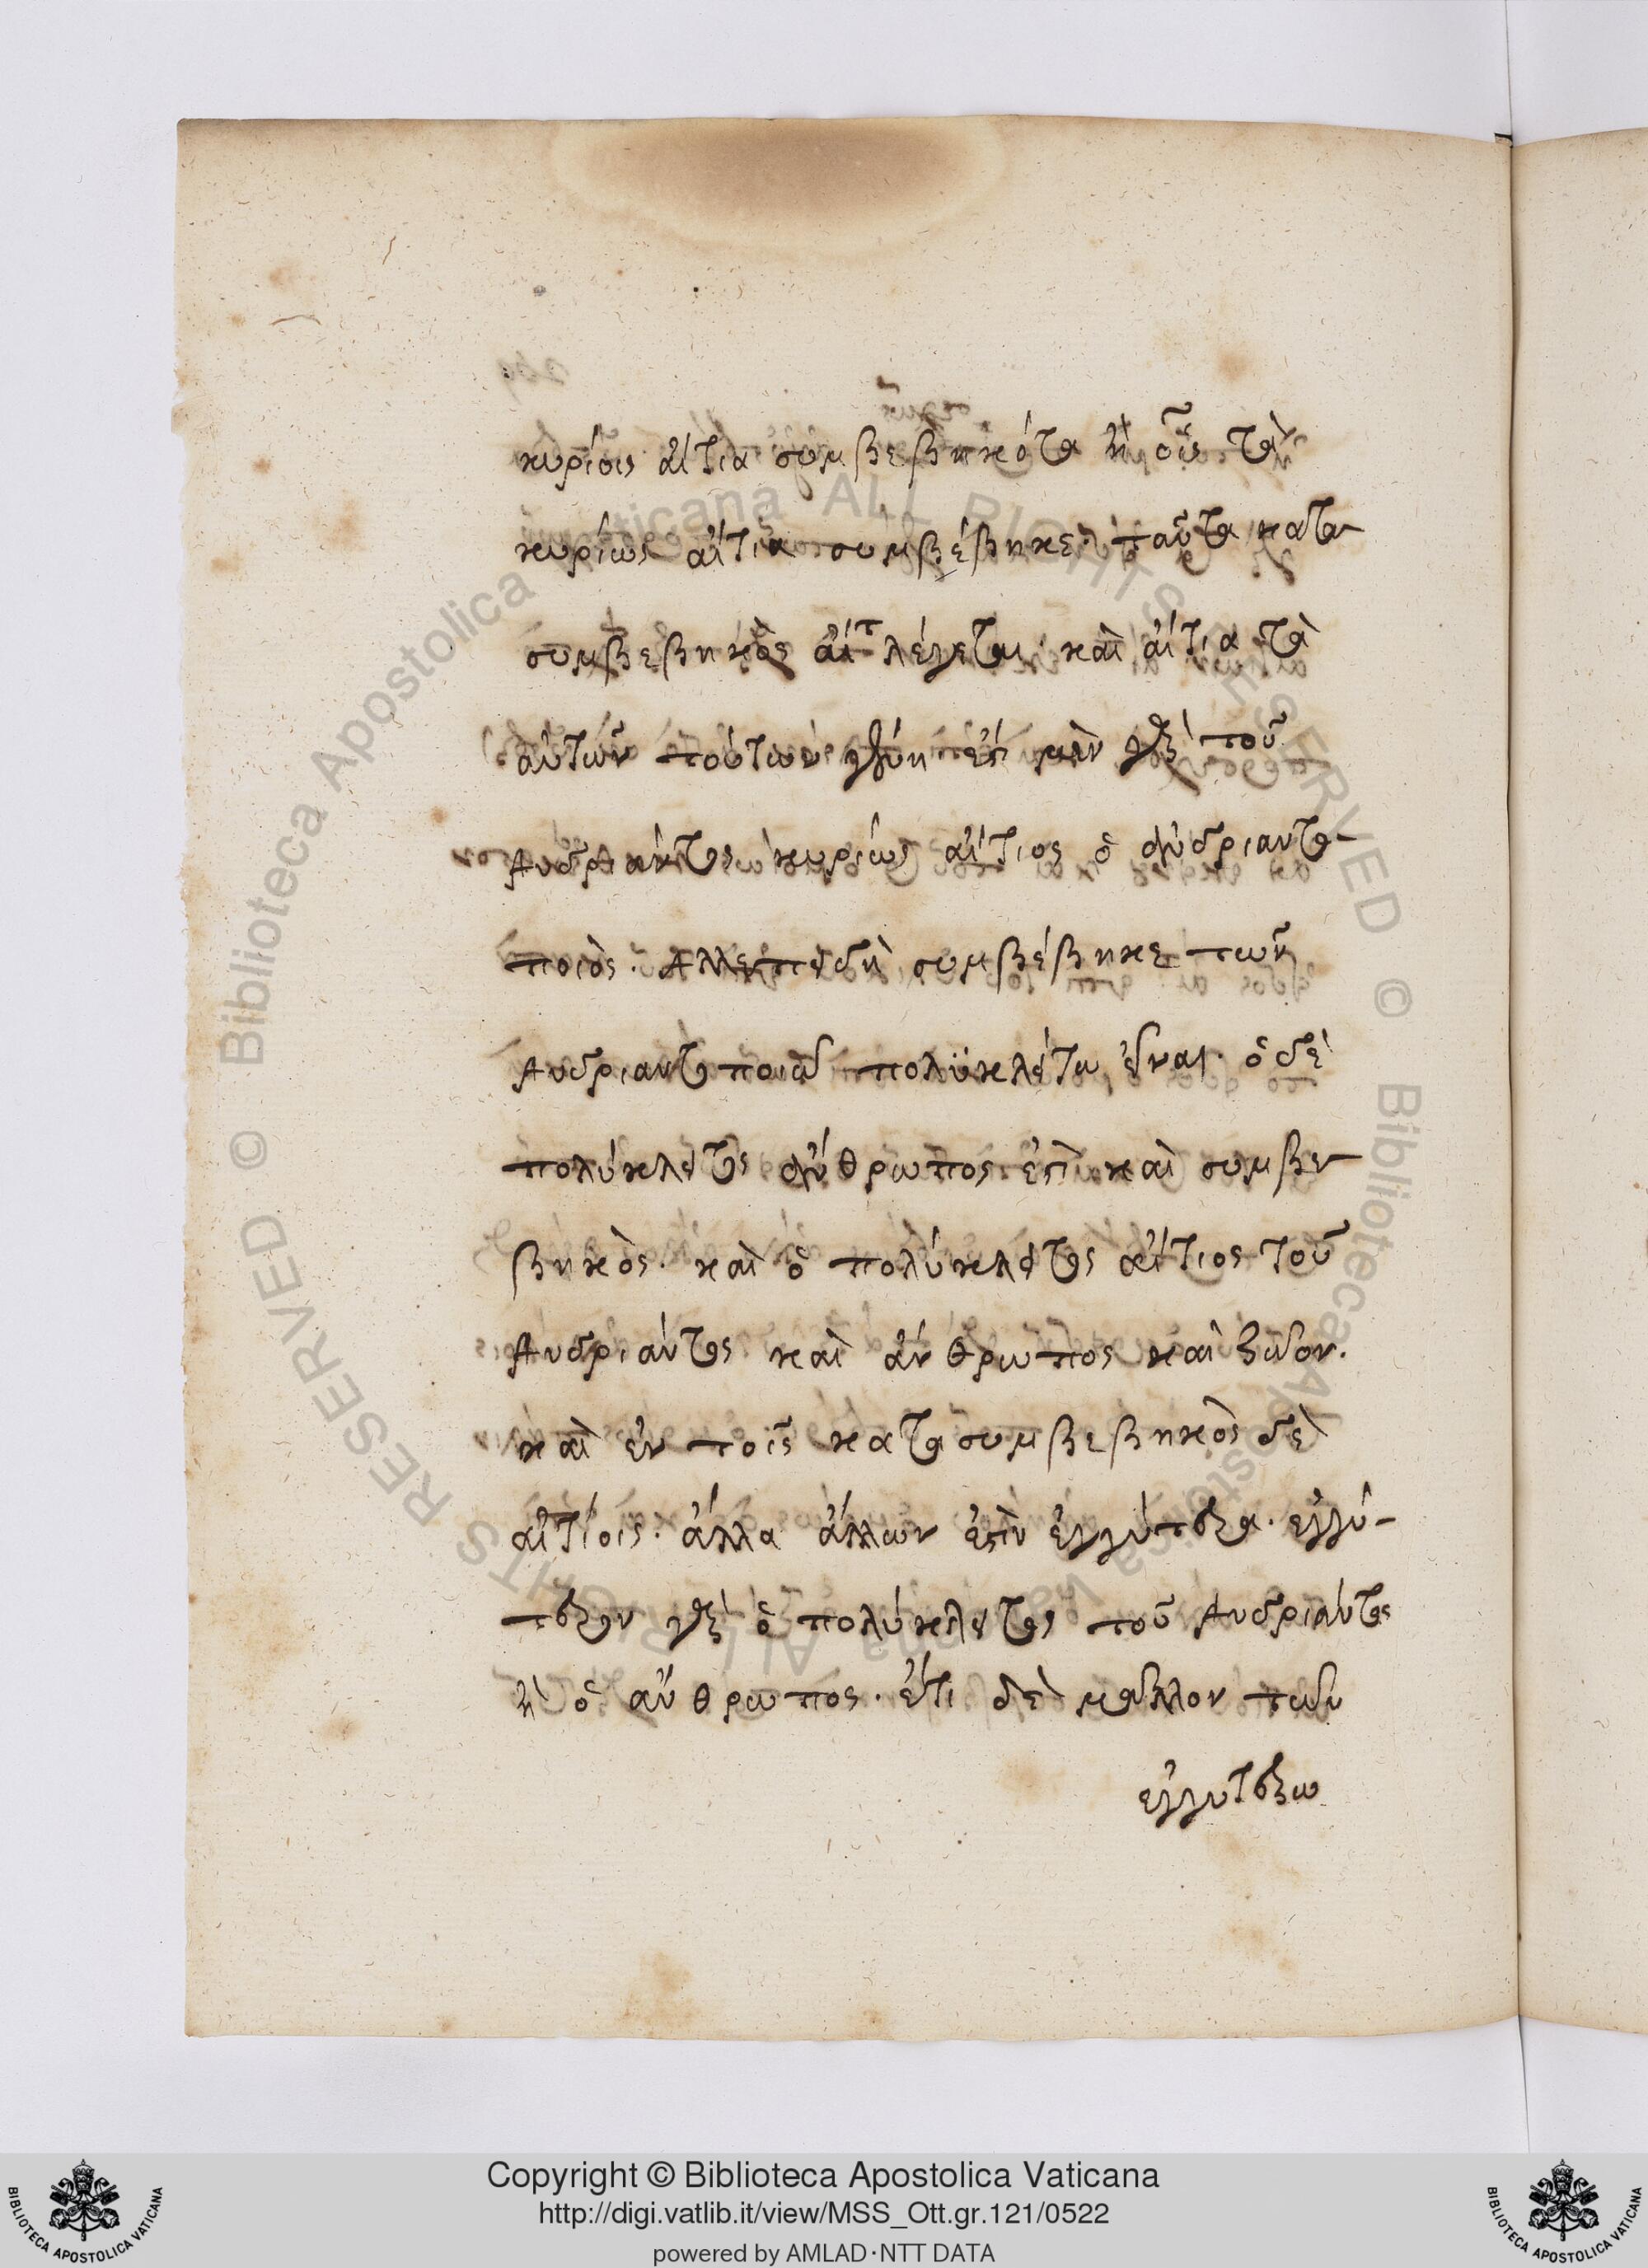 κυρίοις αἴτια συμβεβηκότα ἢ οἷς τὰ
κυρίως αἴτια συμβέβηκε. ταῦτα κατα
συμβεβηκὸς αἴτ λέγεται. καὶ αἴτια τὰ
αὐτῶν τούτων γένη. ἔστι μὲν γὰρ τοῦ
ἀνδριάντος κυρίως αἴτιος ὁ ἀνδριαντο-
ποιός. ἀλλ' ἐπειδὴ συμβέβηκε τῶ
ἀνδριαντοποιῶ πολυκλείτω εἶναι. ὁ δὲ
πολύκλειτος ἄνθρωπος ἐστὶ καὶ συμβε
βηκὸς. καὶ ὁ πολύκλειτος αἴτιος τοῦ
ἀνδριάντος καὶ ἄνθρωπος καὶ ζῶον.
καὶ ἐν τοῖς κατασυμβεβηκὸς δὲ
αἰτίοις. ἄλλα ἄλλων ἐστὶν ἐγγύτερα. ἐγγύ-
τερον γὰρ ὁ πολύκλειτος τοῦ ἀνδριάντος
ἢ ὁ ἄνθρωπος. ἔτι δὲ μᾶλλον τῶν
ἐγγυτέρω
Copyright © Biblioteca Apostolica Vaticana
http://digi.vatlib.it/view/MSS_Ott.gr.121/0522
powered by AMLAD·NTT DATA